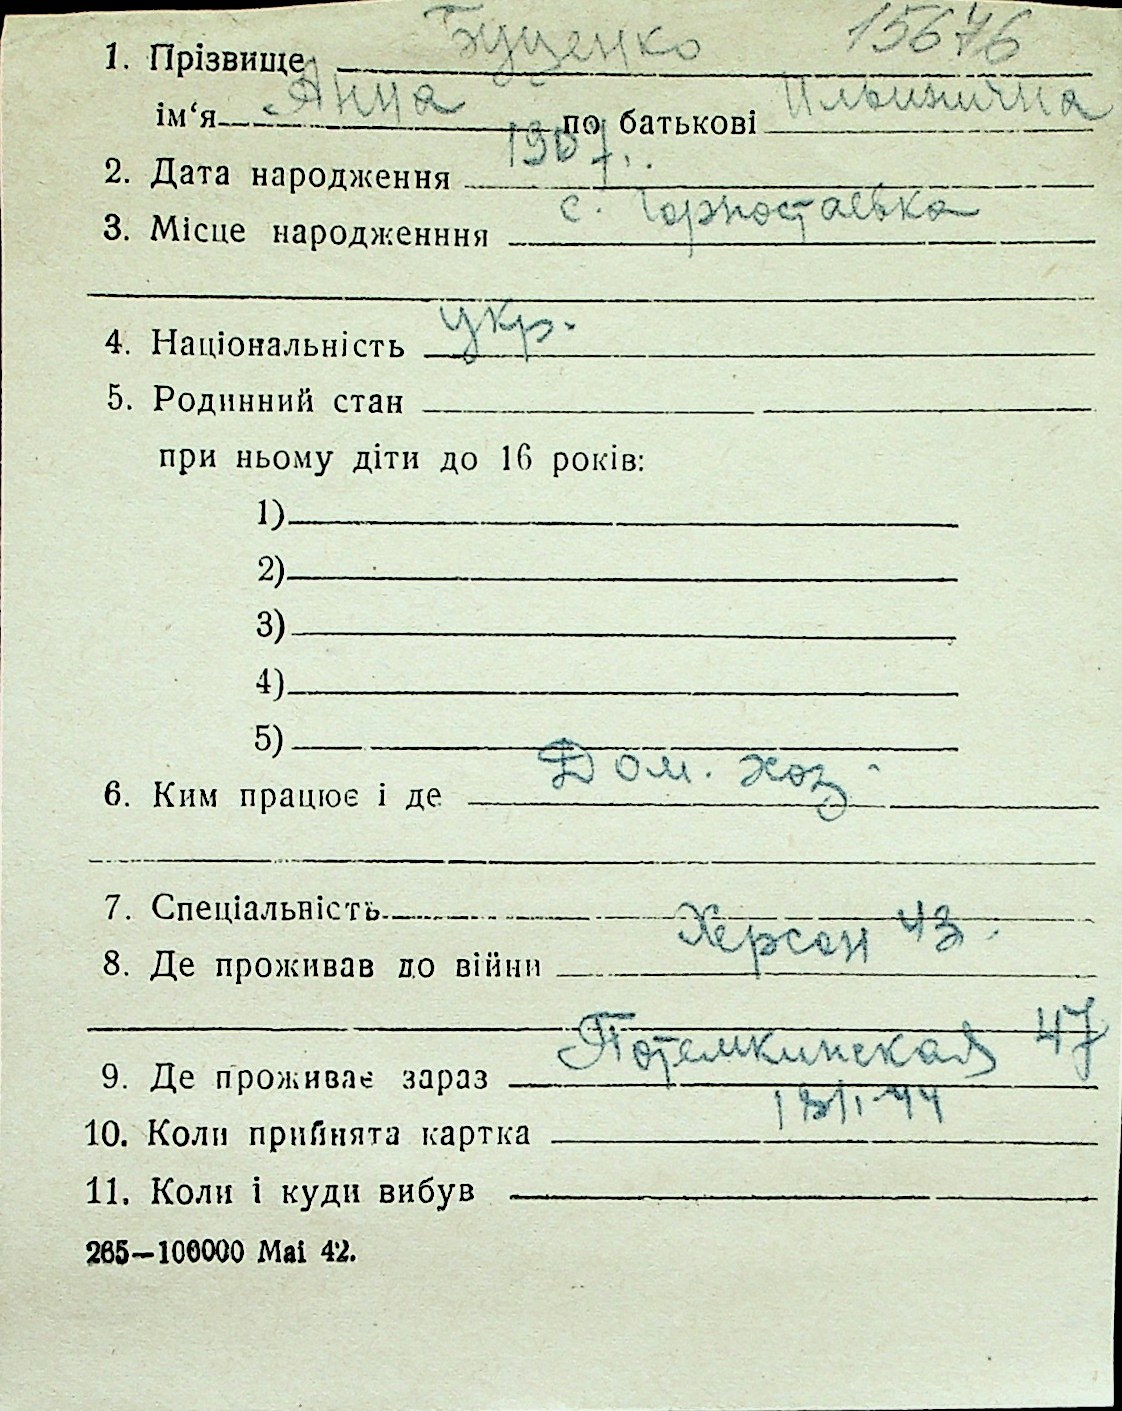 1. Прізвище Буценко 15676
ім‘я Анна по батькові Ильинична
2. Дата народження 1907.
3. Місце народженння с. Горностаевка
4. Національність укр.
5. Родинний стан
при ньому діти до 16 років:
1)
2)
3)
4)
5)
6. Ким працює і де Дом. хоз.
7. Спеціальність
8. Де проживав до війни Херсон 43.
9. Де проживає зараз Потемкинская 47
10. Коли прийнята картка
11. Коли і куди вибув
265—100000 Mai 42.